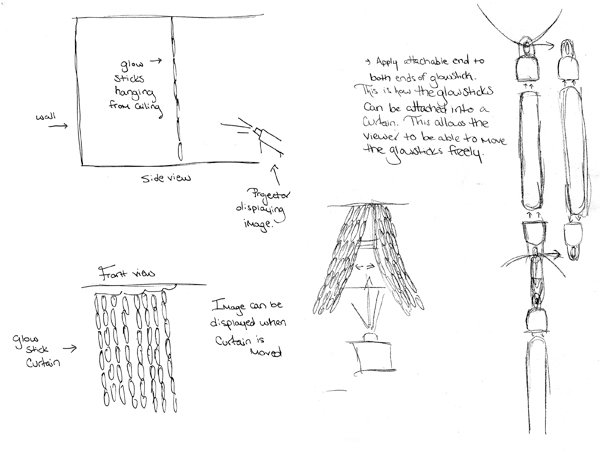 glow
sticks
hanging
from ceiling
wall
Side view
Projector
displaying
image.
Front view
Glow
Stick
Curtain
Image can be
displayed when
Curtain is
Moved
Apply attachable end to
both ends of glowstick.
This is how the glowsticks
can be attached into a
curtain. This allows the
viewer to be able to move
the glowsticks freely.